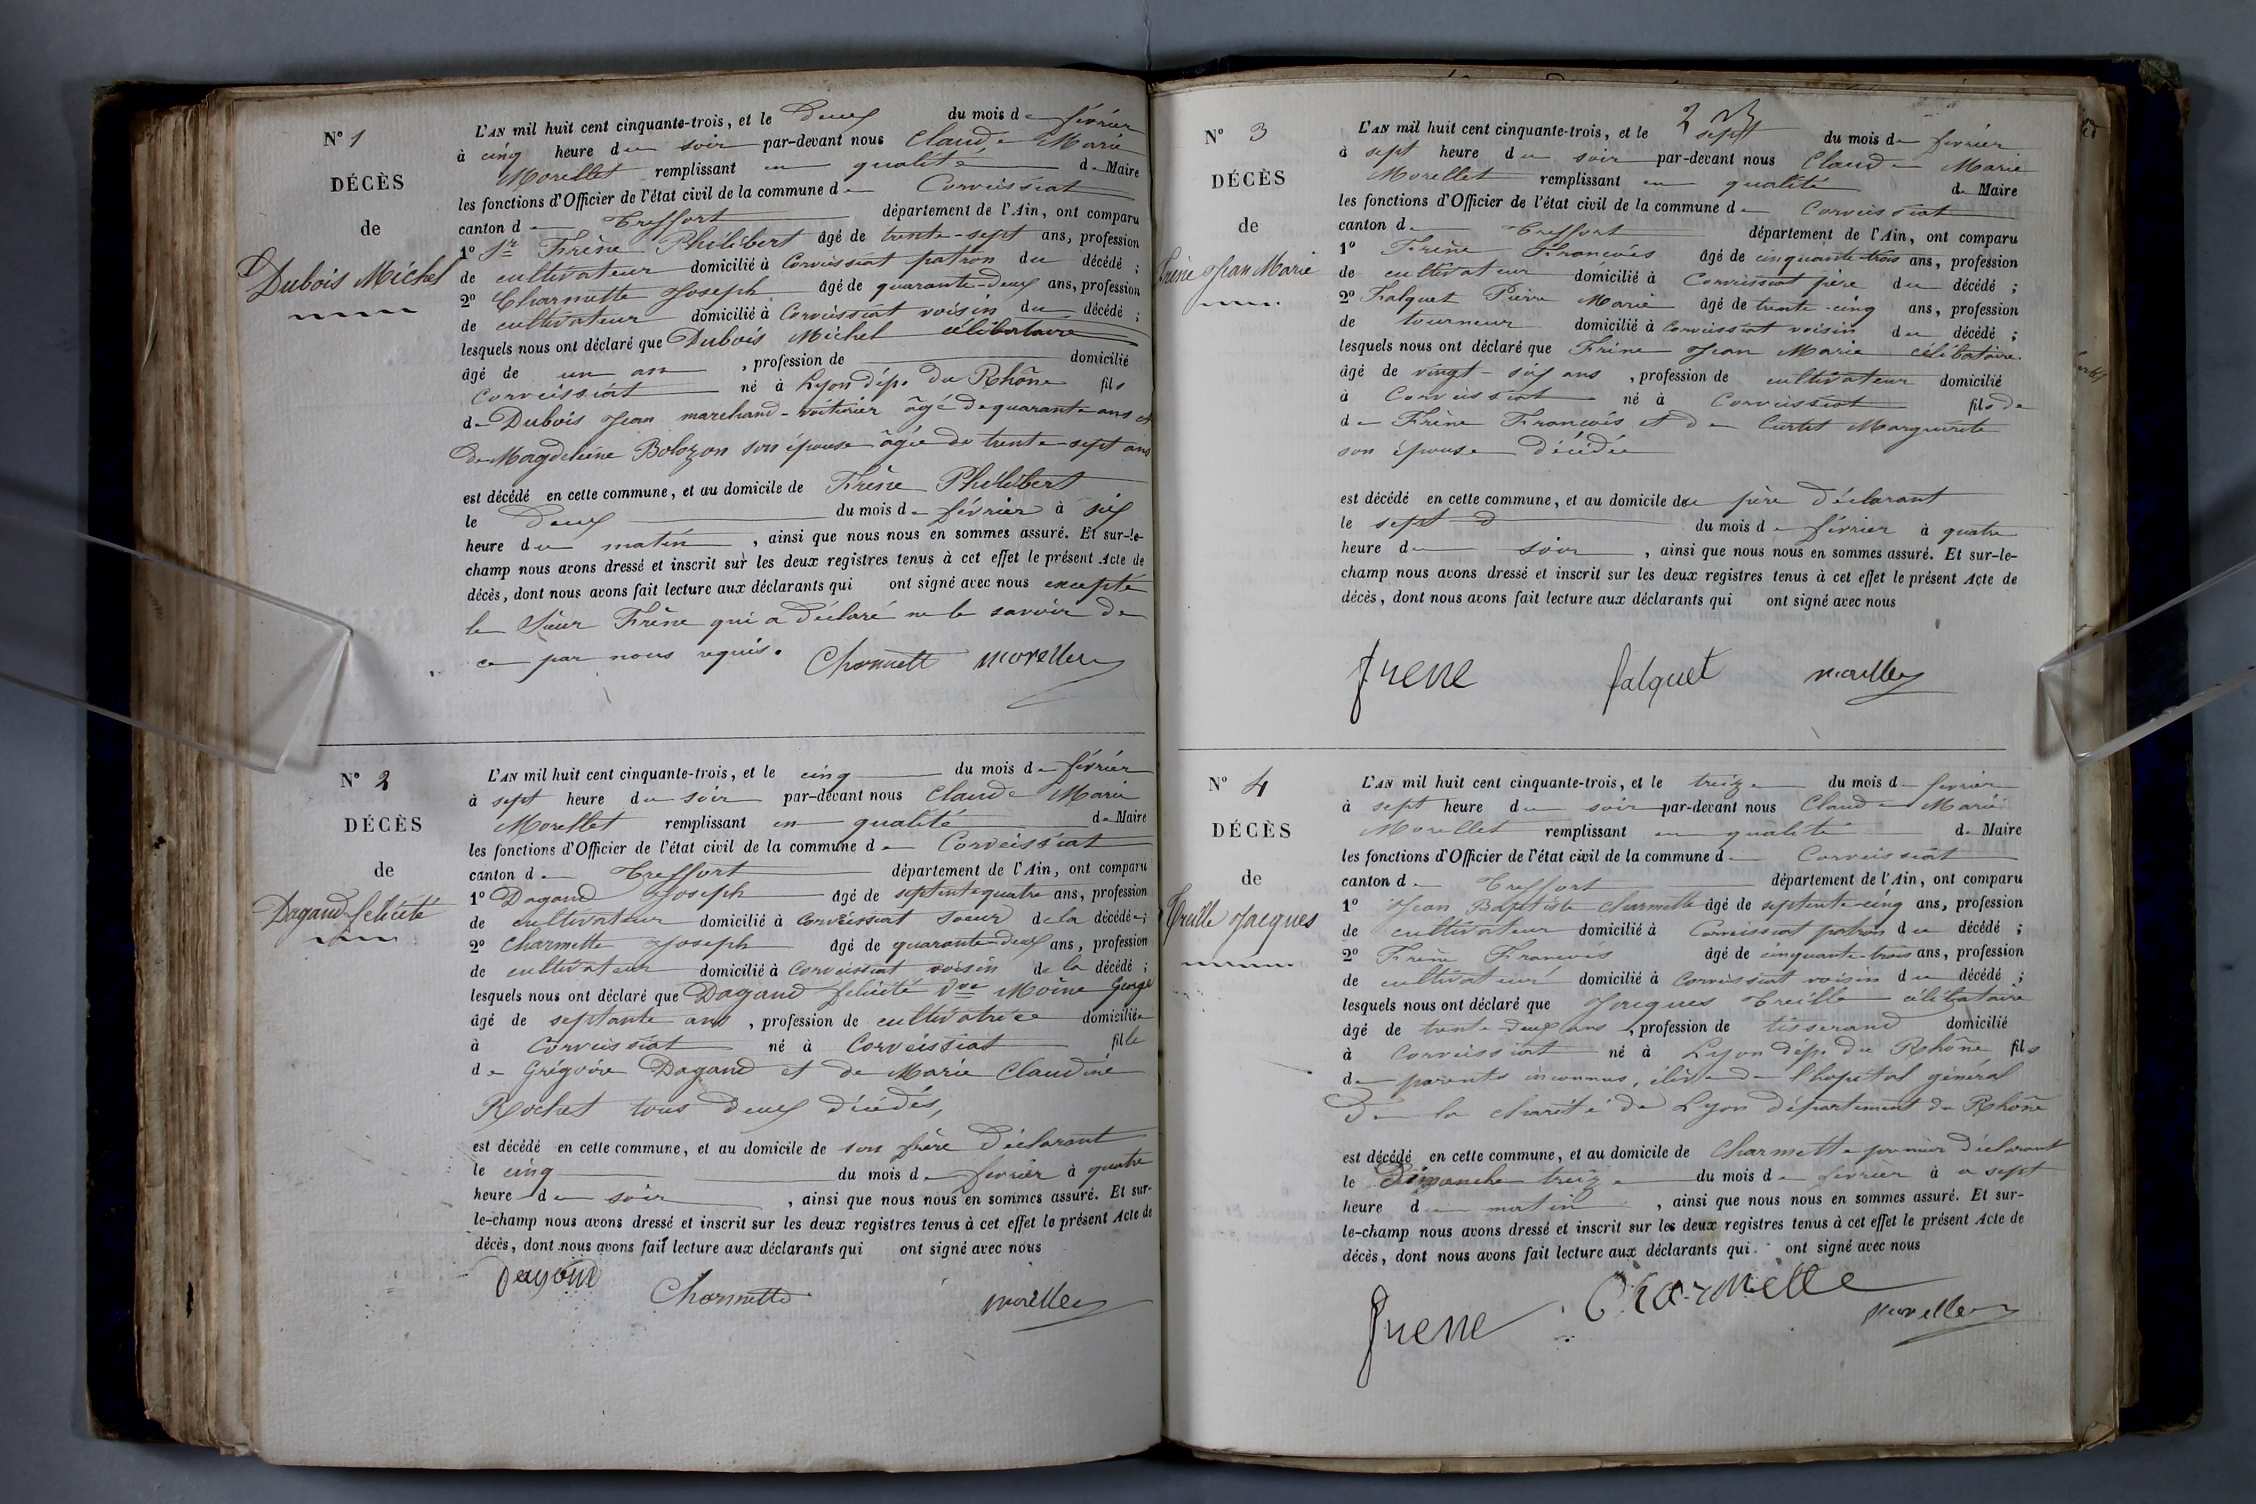 N° 1
DÉCÈS
de
Dubois Michel
L'AN mil huit cent cinquante-trois, et le deux du mois de février
à cinq heure du soir par-devant nous Claude Marie
Morellet remplissant en qualité de Maire
les fonctions d'Officier de l'état civil de la commune de Corveissiat
canton de Treffort département de l'Ain, ont comparu
1° Sr Frène Philibert âgé de trente-sept ans, profession
de cultivateur domicilié à Corveissiat patron du décédé ;
2° Charmette Joseph âgé de quarante-deux ans, profession
de cultivateur domicilié à Corveissiat voisin du décédé ;
lesquels nous ont déclaré que Dubois Michel célibataire
âgé de un an , profession de domicilié
Corveissiat né à Lyon dép. du Rhône fils
de Dubois Jean marchand-voiturier âgé de quarante ans et
de Magdeleine Bolozon son épouse âgée de trente-sept ans
est décédé en cette commune, et au domicile de Frène Philibert
le deux du mois de février à six
heure du matin , ainsi que nous nous en sommes assuré. Et sur-le-
champ nous avons dressé et inscrit sur les deux registres tenus à cet effet le présent Acte de
décès, dont nous avons fait lecture aux déclarants qui ont signé avec nous excepté
le Sieur Frène qui a déclaré ne le savoir de
ce par nous requis.
Charmette Morellet
N° 2
DÉCÈS
de
Dagand Félicité
L'AN mil huit cent cinquante-trois, et le cinq du mois de février
à sept heure du soir par-devant nous Claude Marie
Morellet remplissant en qualité de Maire
les fonctions d'Officier de l'état civil de la commune de Corveissiat
canton de Treffort département de l'Ain, ont comparu
1° Dagand Joseph âgé de septente quatre ans, profession
de cultivateur domicilié à Corveissiat soeur de la décédée ;
2° Charmette Joseph âgé de quarante-deux ans, profession
de cultivateur domicilié à Corveissiat voisin de la décédé ;
lesquels nous ont déclaré que Dagand félicité Vve Moine George
âgé de septante ans , profession de cultivatrice domiciliée
à Corveissiat né à Corveissiat fille
de Grégoire Dagand et de Marie Claudine
Rochet tous deux décédés,
est décédé en cette commune, et au domicile de son frère déclarant
le cinq du mois de février à quatre
heure du soir , ainsi que nous nous en sommes assuré. Et sur-
le-champ nous avons dressé et inscrit sur les deux registres tenus à cet effet le présent Acte de
décès, dont nous avons fait lecture aux déclarants qui ont signé avec nous
Dagand Charmette Morellet
N° 3
DÉCÈS
de
Frène Jean Marie
L'AN mil huit cent cinquante-trois, et le sept du mois de février
à sept heure du soir par-devant nous Claude Marie
Morellet remplissant en qualité de Maire
les fonctions d'Officier de l'état civil de la commune de Corveissiat
canton de Treffort département de l'Ain, ont comparu
1° Frène François âgé de cinquante-trois ans, profession
de cultivateur domicilié à Corveissiat père du décédé ;
2° Falquet Pierre Marie âgé de trente-cinq ans, profession
de tourneur domicilié à Corveissiat voisin du décédé ;
lesquels nous ont déclaré que Frène Jean Marie célibataire
âgé de vingt-six ans , profession de cultivateur domicilié
à Corveissiat né à Corveissiat fils de
de Frène François et de Curtet Marguerite
son épouse décédée
est décédé en cette commune, et au domicile du père déclarant
le sept du mois de février à quatre
heure du soir , ainsi que nous nous en sommes assuré. Et sur-le-
champ nous avons dressé et inscrit sur les deux registres tenus à cet effet le présent Acte de
décès, dont nous avons fait lecture aux déclarants qui ont signé avec nous
frene falquet Morellet
N° 4
DÉCÈS
de
Treille Jacques
L'AN mil huit cent cinquante-trois, et le treize du mois de février
à sept heure du soir par-devant nous Claude Marie
Morellet remplissant en qualité de Maire
les fonctions d'Officier de l'état civil de la commune de Corveissiat
canton de Treffort département de l'Ain, ont comparu
1° Jean Baptiste Charmette âgé de septente-cinq ans, profession
de cultivateur domicilié à Corveissiat patron du décédé ;
2° Frène François âgé de cinquante-trois ans, profession
de cultivateur domicilié à Corveissiat voisin du décédé ;
lesquels nous ont déclaré que Jacques Treille célibataire
âgé de trente-deux ans , profession de tisserand domicilié
à Corveissiat né à Lyon dép. du Rhône fils
de parents inconnus, élève de l'hopital général
de la charité de Lyon département du Rhône
est décédé en cette commune, et au domicile de Charmette premier déclarant
le Dimanche treize du mois de février à a sept
heure du matin , ainsi que nous nous en sommes assuré. Et sur-
le-champ nous avons dressé et inscrit sur les deux registres tenus à cet effet le présent Acte de
décès, dont nous avons fait lecture aux déclarants qui ont signé avec nous
frene Charmette Morellet